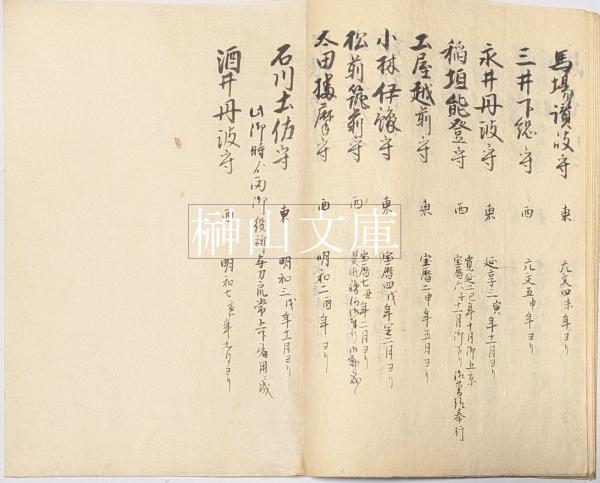 馬場讃岐守 東 元文四未年ヨリ
三井下総守 西 元文五申年ヨリ
永井丹波守 東 延享三寅年十一月ヨリ
稲垣能登守 西 寛延二巳年十月御上京
宝暦六子十一月御下り
土屋越前守 東 宝暦二申年五月ヨリ
小林伊豫守 東 宝暦四戌年
松前筑前守 西 宝暦七丑年二月ヨリ
太田播磨守 西 明和二酉年ヨリ
石川土佐守 東 明和三戌年十一月ヨリ
此御時ゟ両御役所与力
酒井丹波守 西 明和七寅年
榊山文庫